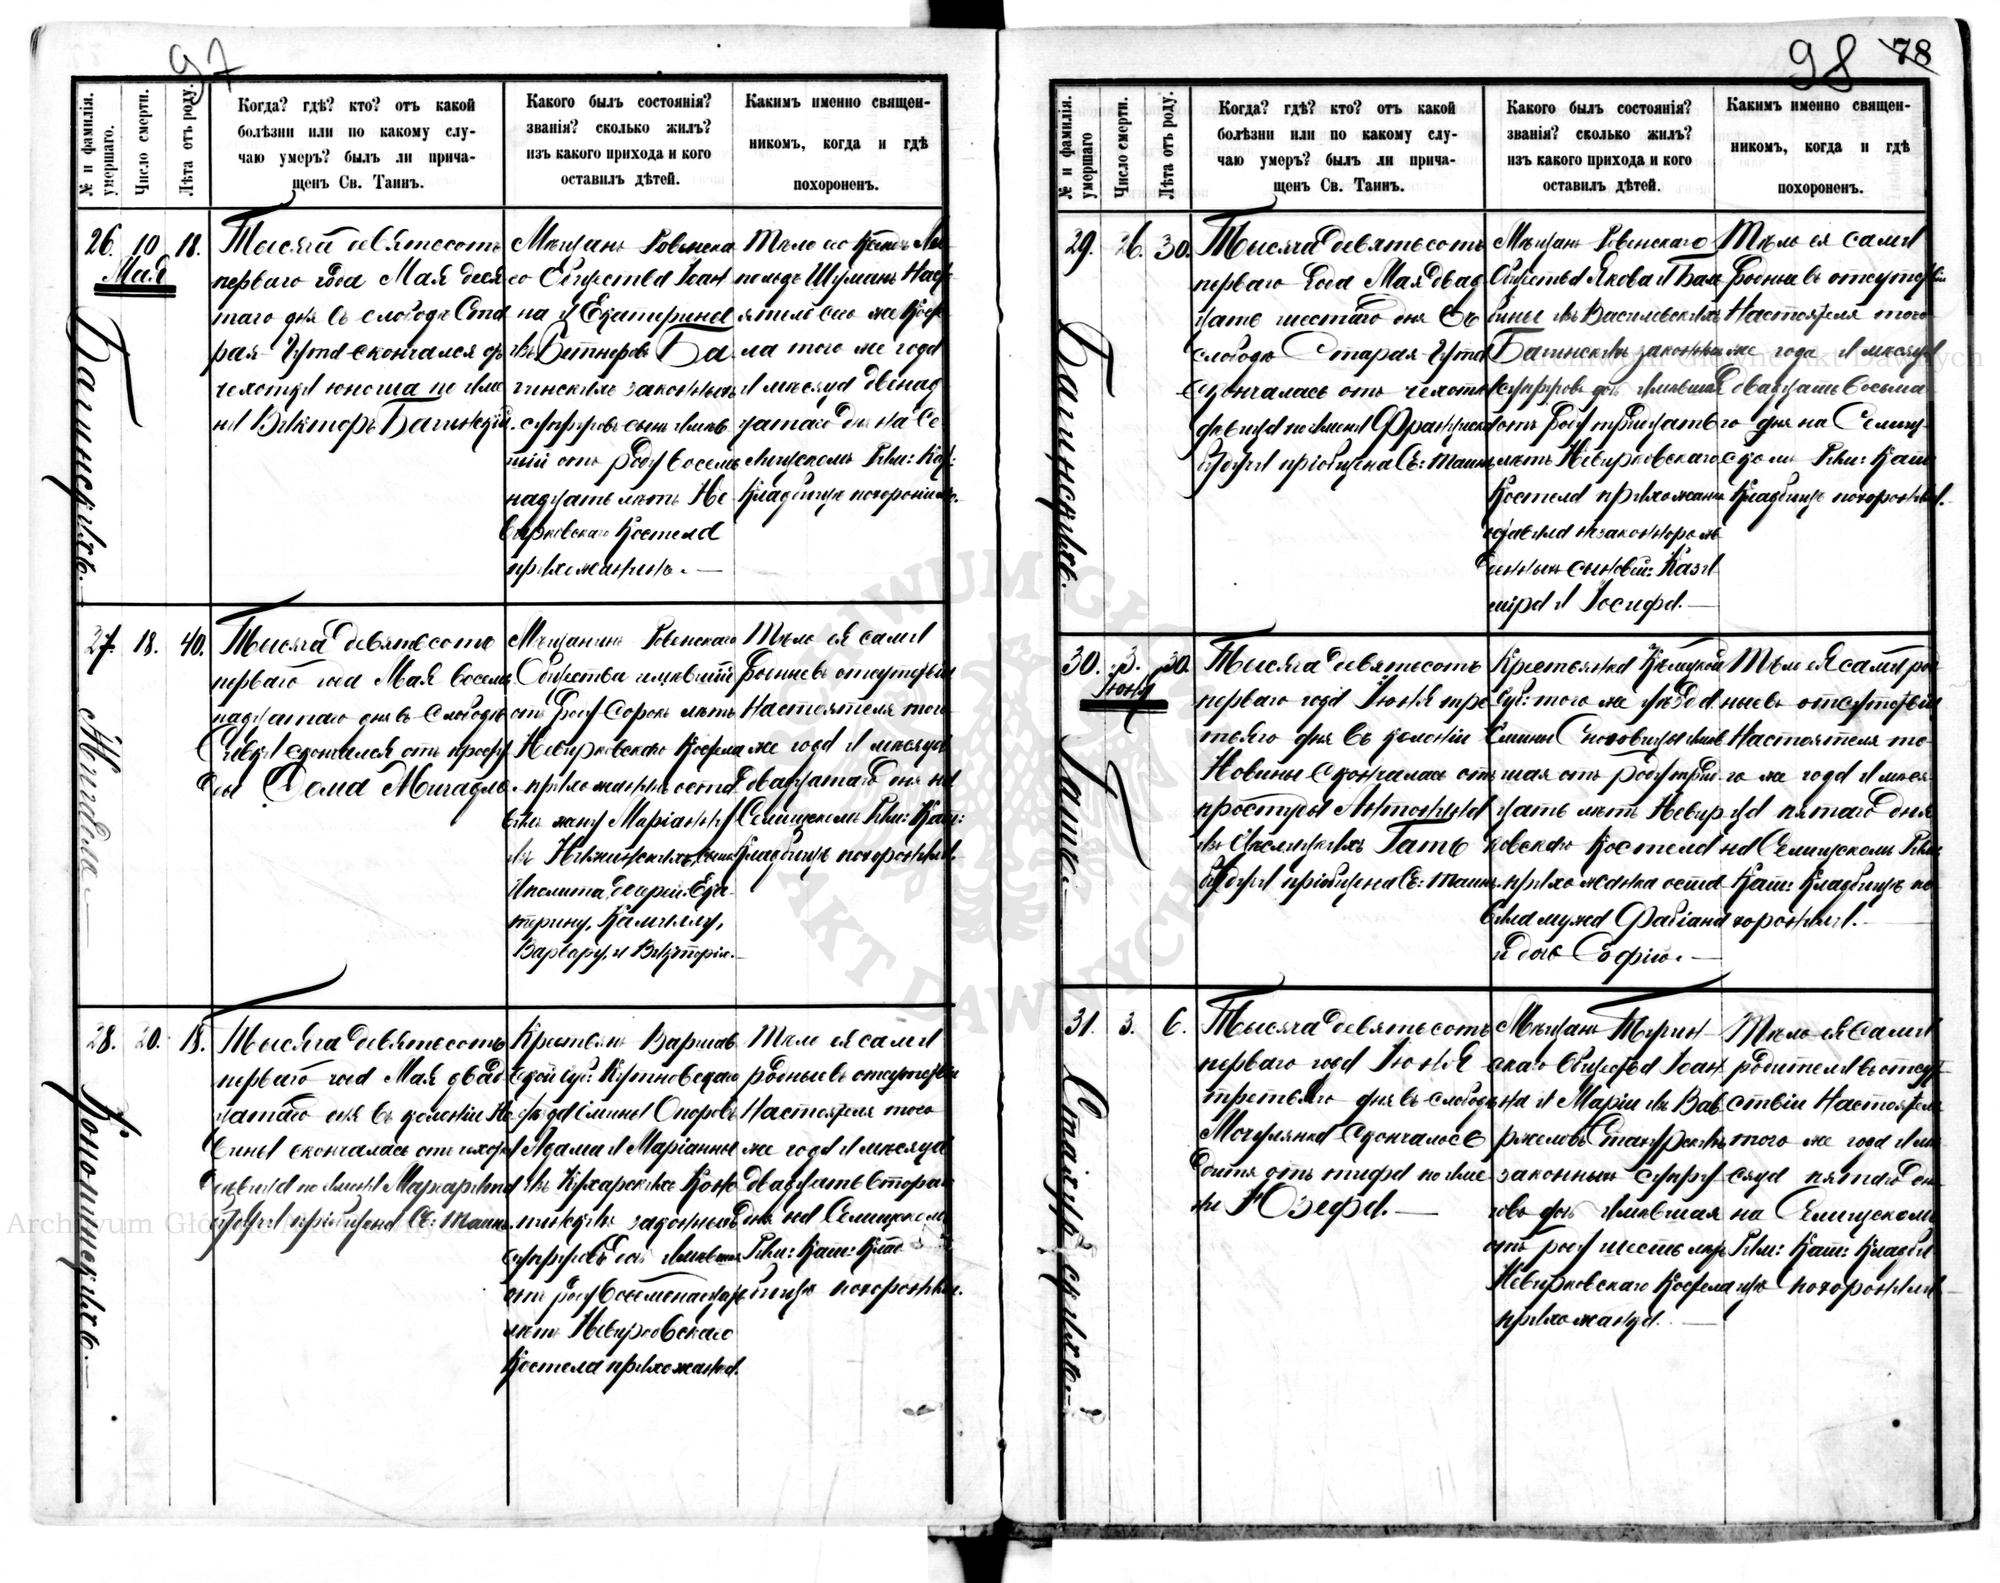 97
№ и фамилія. умершаго.
Число смерти.
Лѣта отъ роду.
Когда? гдѣ? кто? отъ какой
болѣзни или по какому слу-
чаю умеръ? былъ ли прича-
щенъ Св. Таинъ.
Какого былъ состоянія?
званія? сколько жилъ?
изъ какого прихода и кого
оставилъ дѣтей.
Какимъ именно священ-
никомъ, когда и гдѣ
похороненъ.
26.
Мая
Багинскихъ.
10
18.
Тысяча девятьсотъ
перваго года Мая деся
таго дня въ слободѣ Ста
рая-Гута скончался отъ
чехотки юноша по име
ни Викторъ Багинскій.
Мѣщанъ Ровенска
го Общества Іоан
на и Екатерины
изъ Ба
гинскихъ законныхъ
супруговъ сынъ имѣв
шій отъ роду восем
надцать лѣтъ Не
вирковскаго Костела
прихожанинъ.—
Тѣло его Ксендзъ Лео
польдъ Шуманъ Насто
ятель сего же Косте
ла того же года
и мѣсяца двенад
цатаго дня на Се
лищскомъ Рим: Кат:
Кладбищѣ похоронилъ.
27.
Мигдаль.—
18.
40.
Тысяча девятьсотъ
перваго года Мая восем
надцатаго дня въ слободѣ
скончался отъ просту
ды Мигдаль.
Мѣщанинъ Ровенскаго
Общества имѣвшій
отъ роду сорокъ лѣтъ
Невирковскаго Костела
прихожанинъ оста
вилъ жену Маріанну
изъ сына
Иполита, дочерей: Ека-
терину, Камиллу,
Варвару, и Викторію.—
Тѣло ея сами
родные въ отсутствіи
Настоятеля того
же года и мѣсяца
двадцатаго дня на
Селищскомъ Рим: Кат:
Кладбищѣ похоронили.
28.
20.
18.
Тысяча девятьсотъ
перваго года Мая двад
цатаго дня въ колоніи Но
вины скончалась отъ чехотки
дѣвица по имени Маргарита
будучи пріобщена Св: Таинъ.
Крестьянъ Варшав
ской губ: Кутновскаго
уѣзда Гмины Опоровъ
Адама и Маріанны
изъ Кухарскихъ Коно
законныхъ
супруговъ дочь имѣвшая
отъ роду восемнадцать
лѣтъ Невирковскаго
Костела прихожанка.
Тѣло ея сами
родные въ отсутствіи
Настоятеля того
же года и мѣсяца
двадцать втораго
дня на Селищскомъ
Рим: Кат: Клад
бищѣ похоронили.
98 78
№ и фамилія. умершаго
Число смерти.
Лѣта отъ роду.
Когда? гдѣ? кто? отъ какой
болѣзни или по какому слу-
чаю умеръ? былъ ли прича-
щенъ Св. Таинъ.
Какого былъ состоянія?
званія? сколько жилъ?
изъ какого прихода и кого
оставилъ дѣтей.
Какимъ именно священ-
никомъ, когда и гдѣ
похороненъ.
29.
Багинскихъ.
26.
30.
Тысяча девятьсотъ
перваго года Мая двад
цать шестаго дня въ
слободѣ Старая-Гута
скончалась отъ чехотки
дѣвица по имени Франциска
будучи пріобщена Св: Таинъ.
Мѣщанъ Ровенскаго
Общества Якова и Баль
бины изъ Василевскихъ
Багинскихъ законныхъ
супруговъ дочь имѣвшая
отъ роду тридцать
лѣтъ Невирковскаго
Костела прихожанка
оставила незаконнорож
денныхъ сыновей: Кази
мира и Іосифа.—
Тѣло ея сами
родные въ отсутствіи
Настоятеля того
же года и мѣсяца
двадцать восьма
го дня на Селищ
скомъ Рим: Кат:
Кладбищѣ похоронили.
30.
Іюня
Гать.
3.
30.
Тысяча девятьсотъ
перваго года Іюня тре
тьяго дня въ колоніи
Новины скончалась отъ
простуды Антонина
Гать
будучи пріобщена Св: Таинъ.
Крестьянка Кѣлецкой
губ: того же уѣзда
Гмины имѣв
шая отъ роду трид
цать лѣтъ Невир
ковскаго Костела
прихожанка оста
вила мужа Фабіана
и дочь Софію.—
Тѣло ея сами род
ные въ отсутствіи
Настоятеля то
го же года и мѣся
ца пятаго дня
на Селищскомъ Рим:
Кат: Кладбищѣ по
хоронили.—
31.
3.
6.
Тысяча девятьсотъ
перваго года Іюня
третьяго дня въ слободѣ
Мочулянка скончалось
дитя отъ тифа по име
ни Юзефа.—
Мѣщанъ Турин
скаго Общества Іоан
на и Маріи изъ Вав
законныхъ супру
говъ дочь имѣвшая
отъ роду шесть лѣтъ
Невирковскаго Костела
прихожанка.
Тѣло ея сами
родители въ отсут
ствіи Настоятеля
того же года и мѣ
сяца пятаго дня
на Селищскомъ
Рим: Кат: Кладби
щѣ похоронили
ARCHIWUM GŁÓWNE AKT DAWNYCH
Archiwum Główne Akt Dawnych